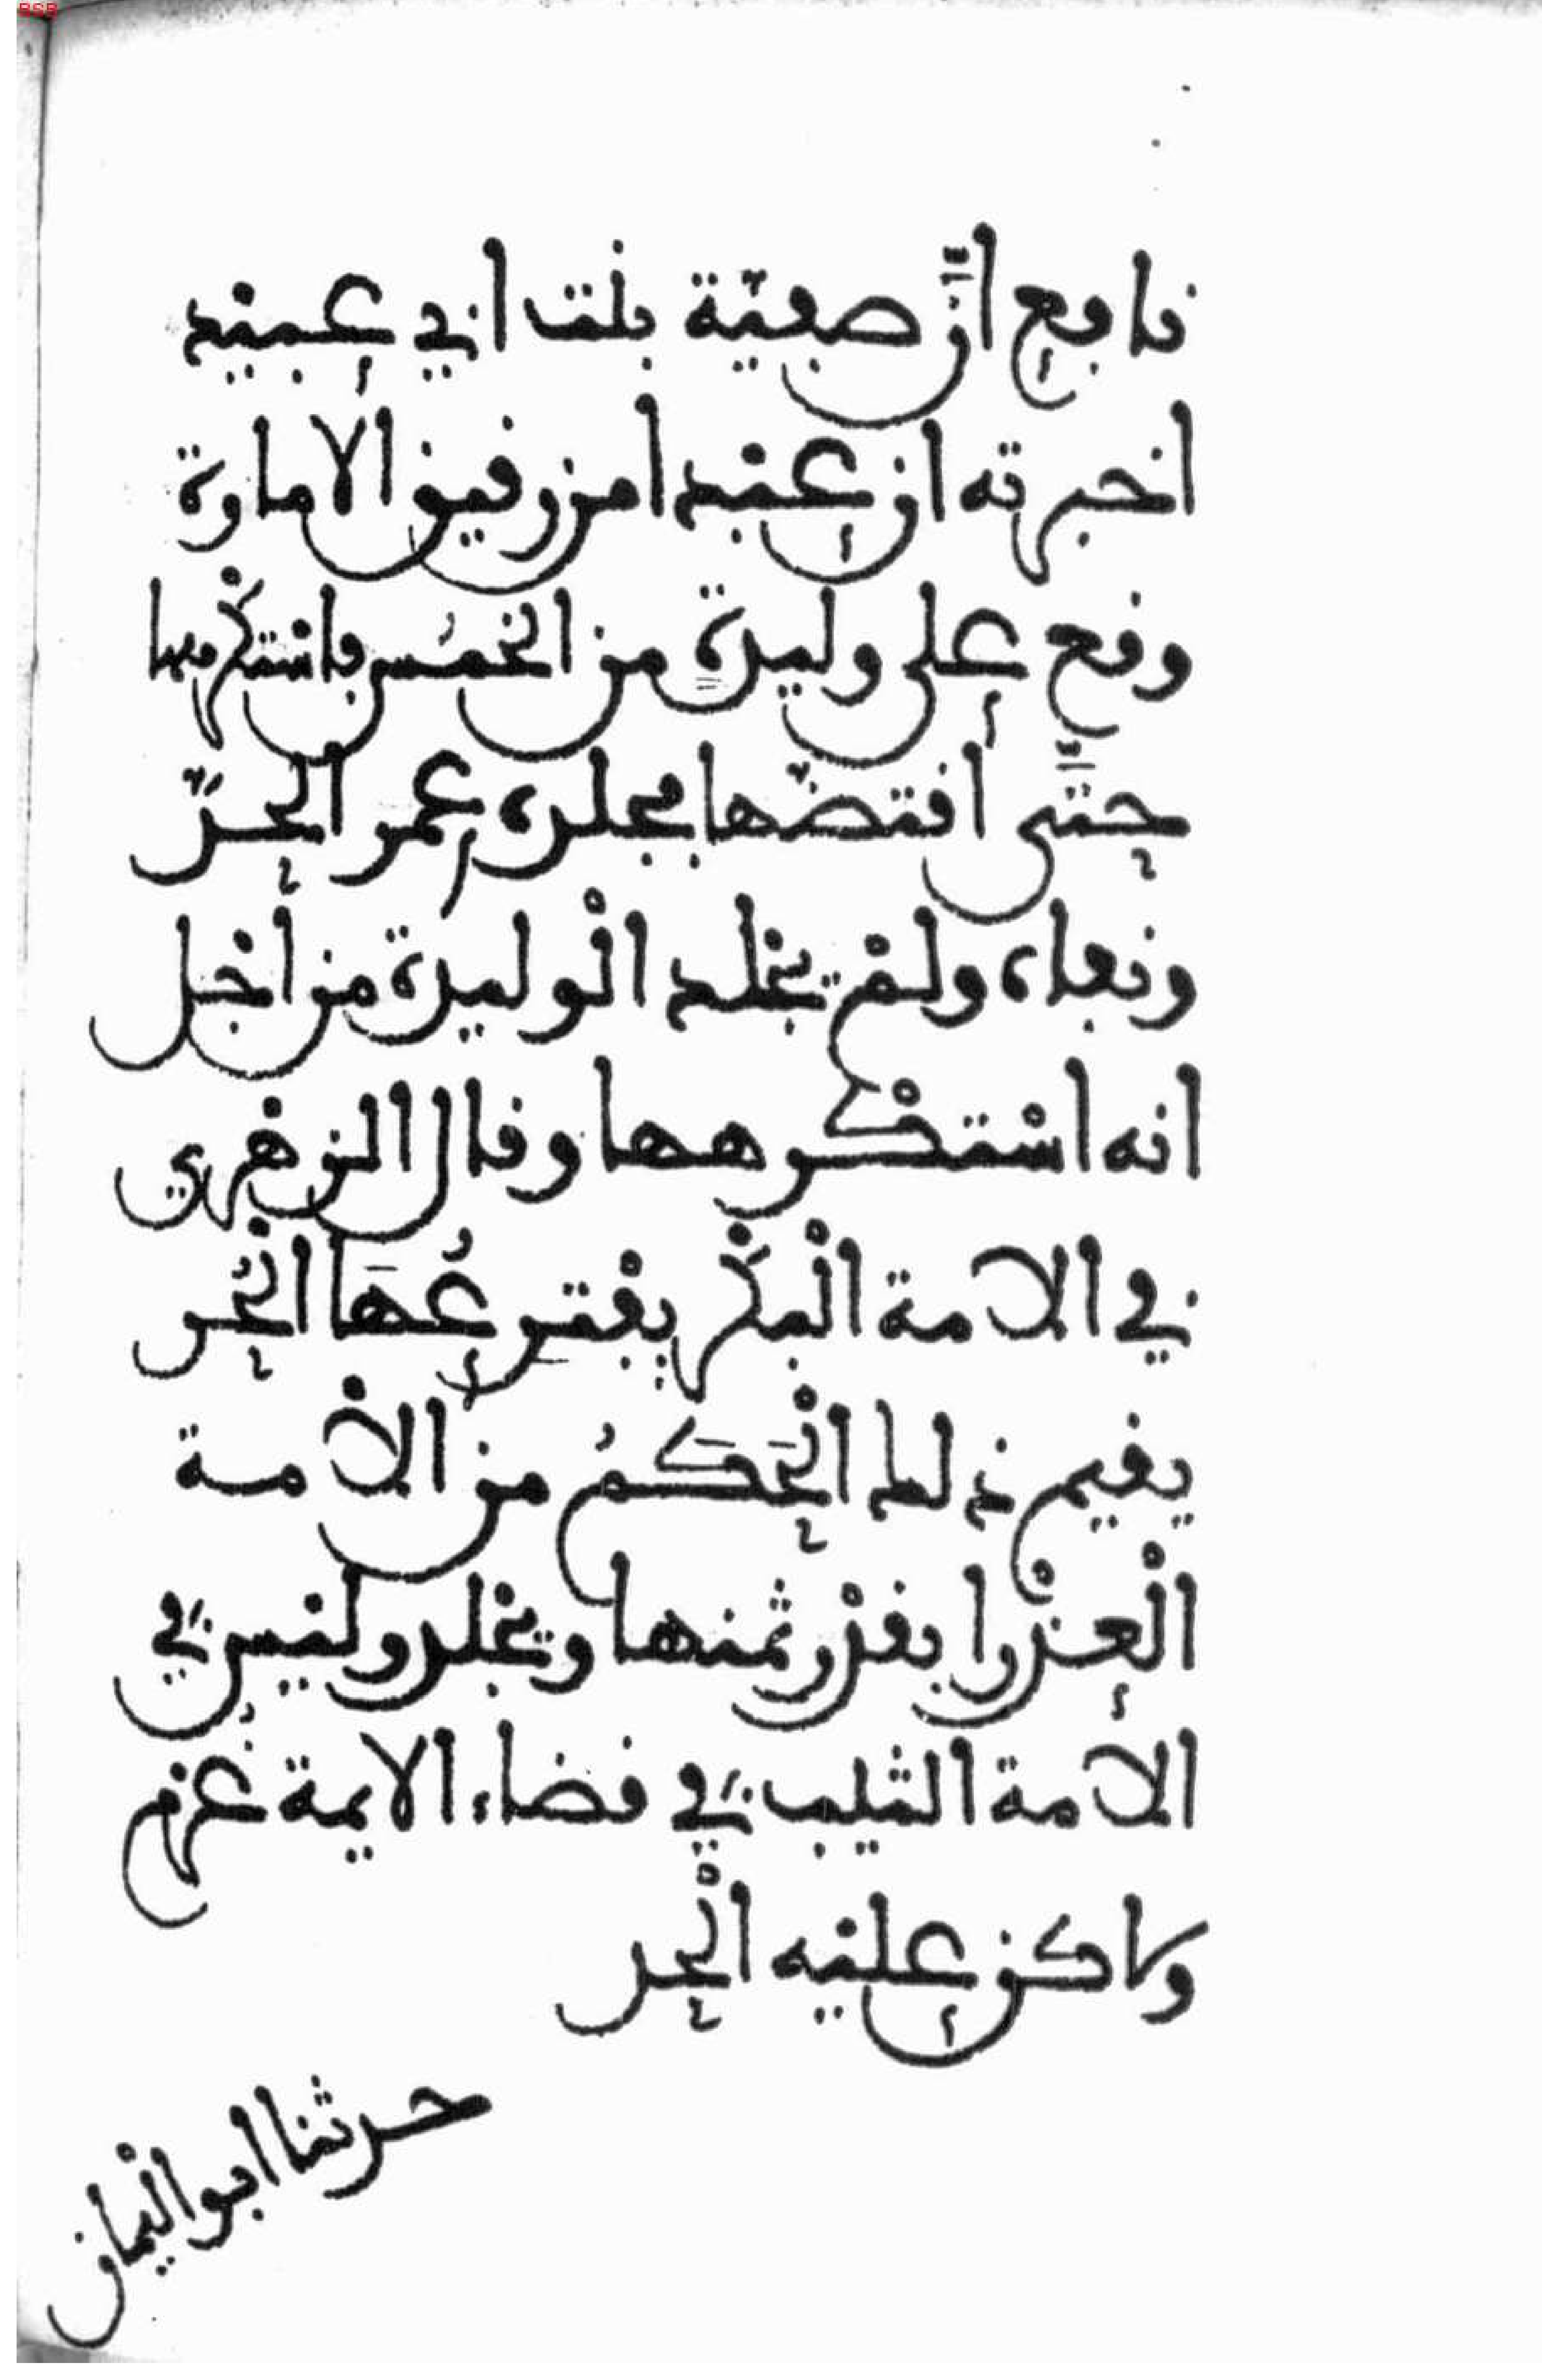 نافع انَّ صفيّة بنت ابي عبيد
اخبرته ان عبْدا من رقيق الامارة
وقع على وليدة من الخمُس فاسْتكْرهها
حتَّى اقتضّها فجلده عمر الحدّ
ونفاه ولمْ يجْلد الْوليدة من اجْل
انه اسْتكْرهها وقال الزهْري
في الامة الْبكْر يفْترعُهَا الْحُر
يقيم ذلك الْحَكَمُ من الامة
الْعذْرا بقدْر ثمنها ويجْلد وليْس في
الامة الثيب في قضاء الايمة غُرم
ولاكن عليْه الْحد
حدثنا ابو الْيمان
BSB